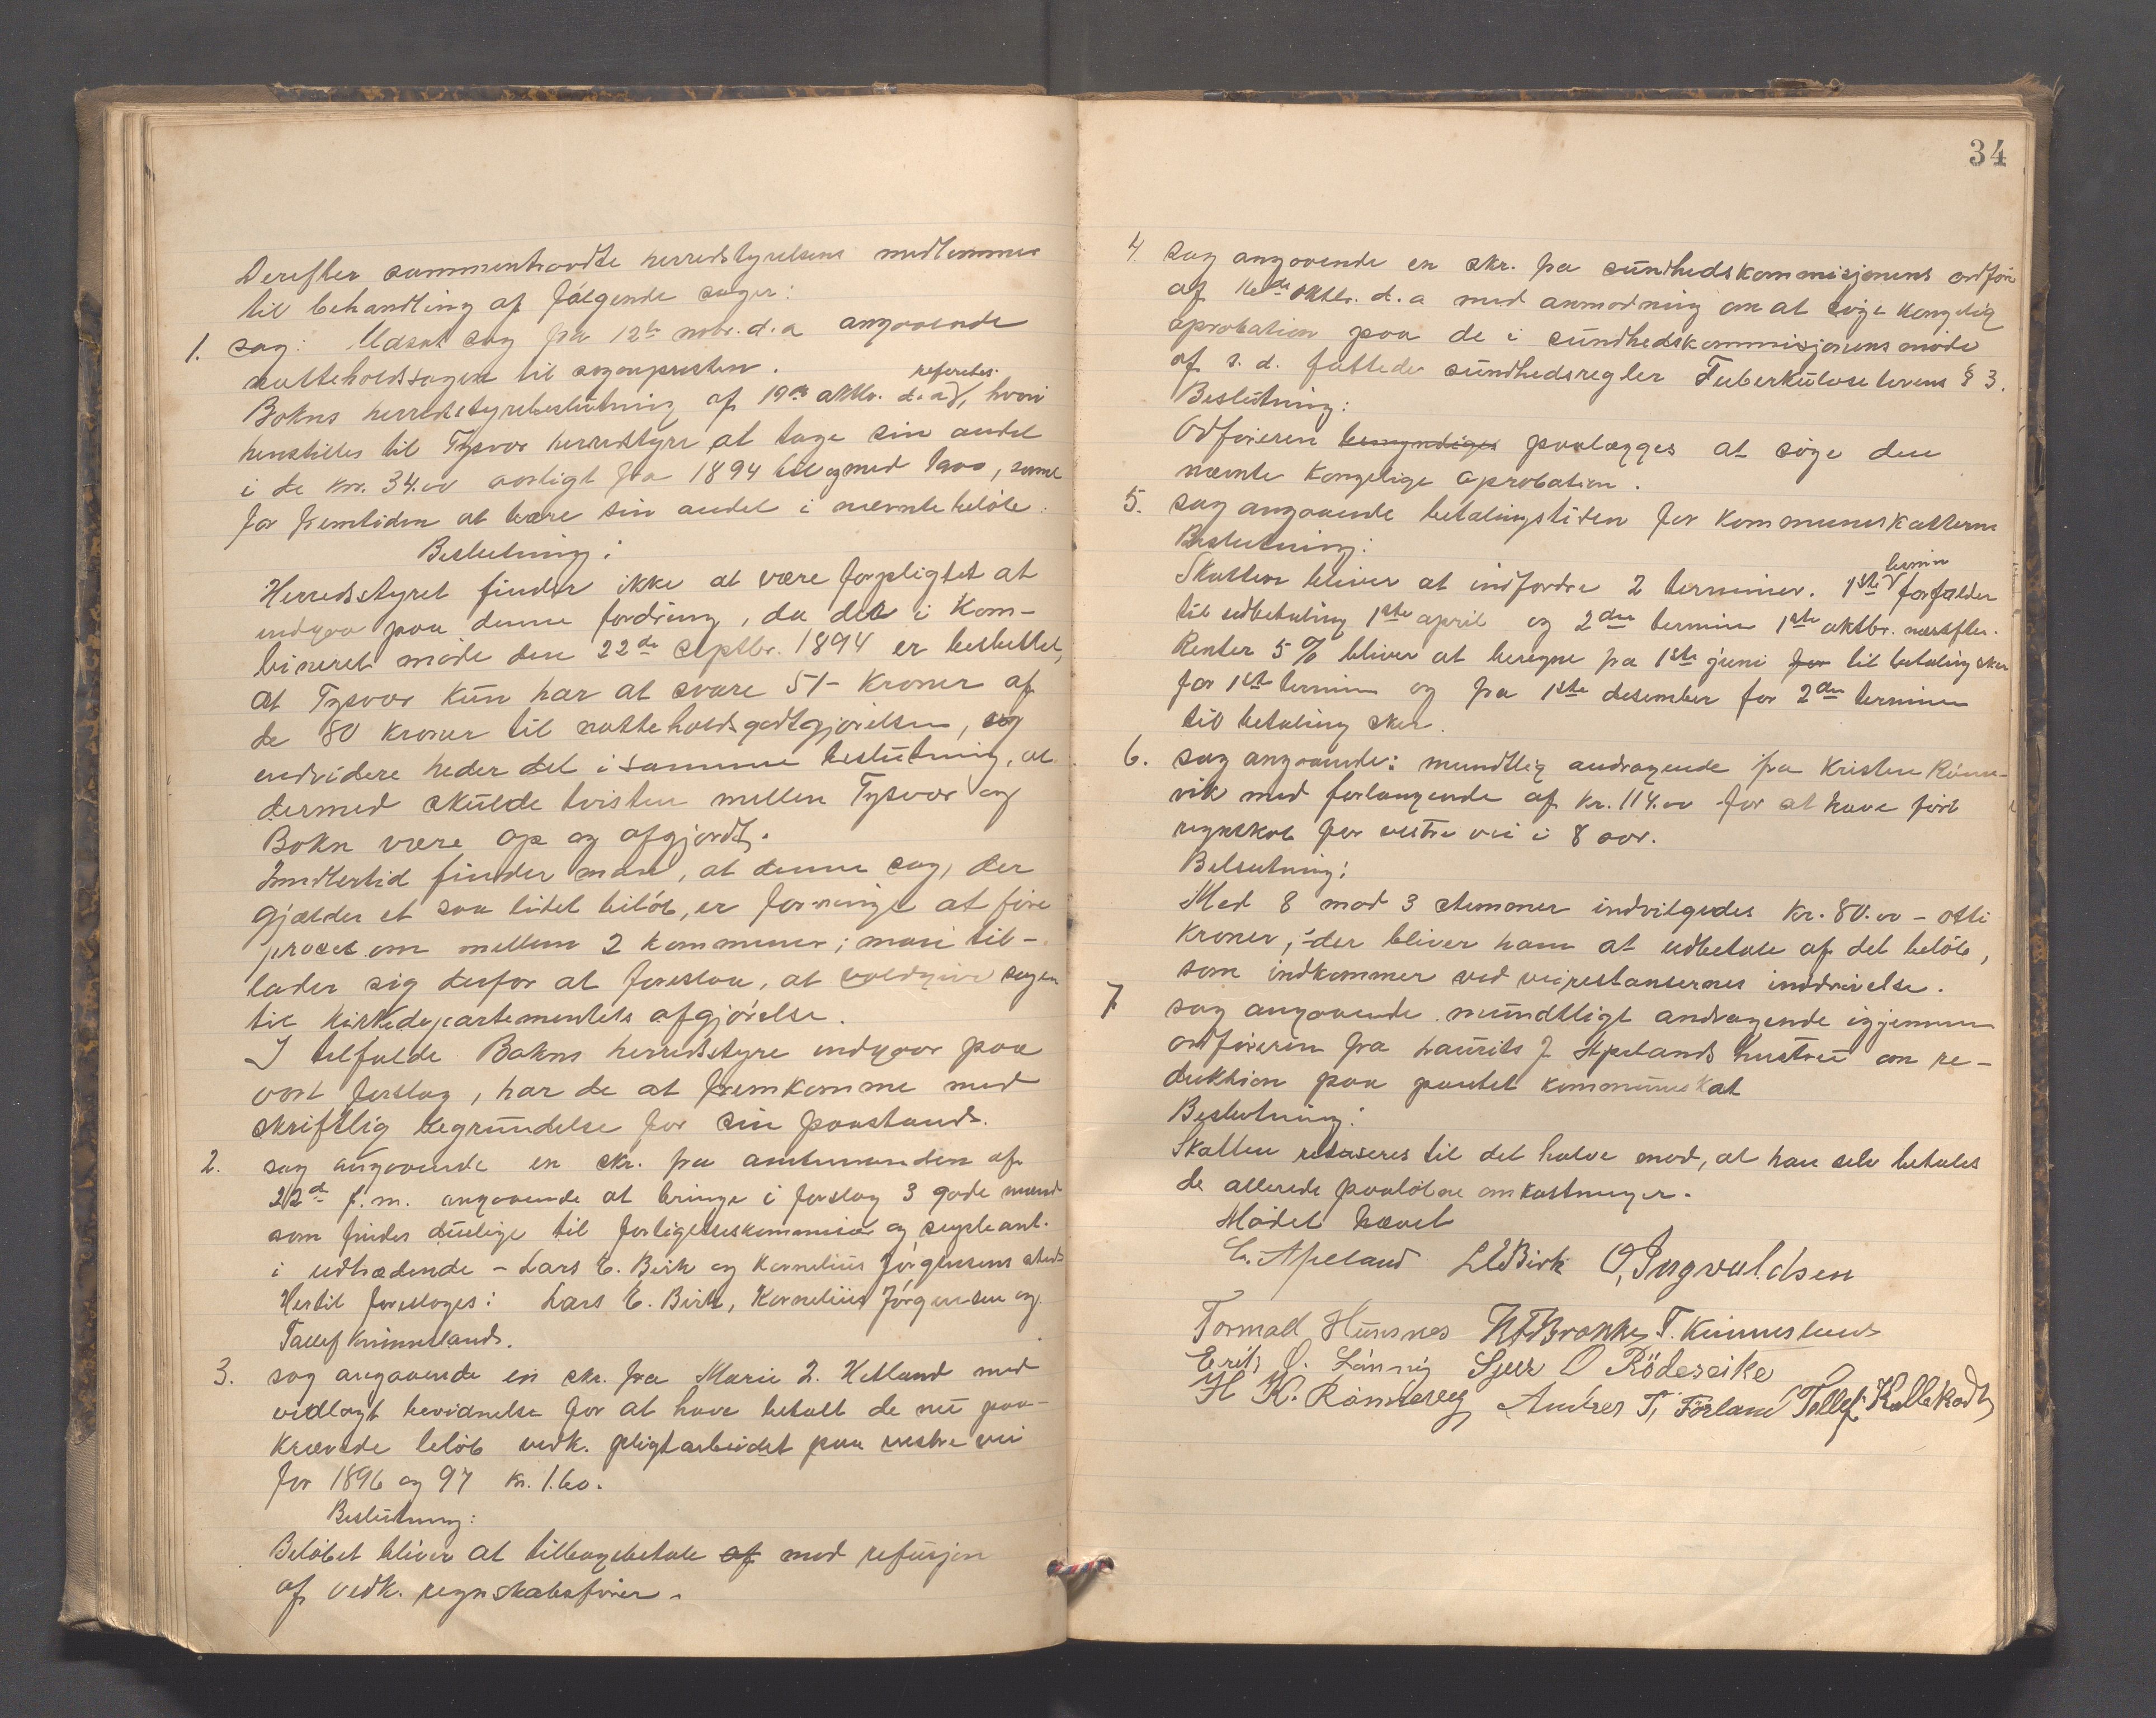 Derefter sammentraadte herredstyrelsens medlemmer
til behandling af følgende sager:
1. sag: Udsat sag fra 12te nvbr. d.a angaaende
natteholdssagen til sognepresten.
Bokns herredstyrebeslutning af 19de oktbr. d.a, referertes. hvori
henstilles til Tysvær herredstyre at tage sin andel
i de kr. 34.00 aarligt fra 1894 til og med 1900, samt
for fremtiden at bære sin andel i nævnte beløb.
Beslutning:
Herredsstyret finder ikke at være forpligtet at
indgaa paa denne fordring, da det i kom-
bineret møde den 22de septbr. 1894 er besluttet,
at Tysvær kun har at svare 51- kroner af
de 80 kroner til natteholdsgodtgjørelsen, og
endvidere heder det i samme beslutning, at
dermed skulde tvisten mellem Tysvær og
Bokn være op og afgjordt.
Imidlertid finder man, at denne sag, der
gjælder et saa lidet beløb, er for ringe at føre
proces om mellem 2 kommuner; man til-
lader sig derfor at foreslaa, at voldgive sagen
til kirkedepartementets afgjørelse.
I tilfælde Bokns herredsstyre indgaar paa
vort forslag, har de at fremkomme med
skriftlig begrundelse for sin paastand.
2. sag angaaende en skr. fra amtmanden af
22de f.m. angaaende at bringe i forslag 3 gode mænd
som findes duelige til forligelseskommisær og supleant.
i udtrædende - Lars E. Birk og Kornelius Jørgensens sted
Hertil foreslages: Lars E. Birk, Kornelius Jørgensen og
Tallef Kinnesland.
3. sag angaaende en skr. fra Marie L. Hetland med
vedlagt bevidnelse for at have betalt de nu paa-
krævede beløb vedk. pligtarbeidet paa vestre vei
for 1896 og 97 kr. 1.60.
Beslutning:
Beløbet bliver at tilbagebetale af mod refusjon
af vedk. regnskabsfører.
34
4. sag angaaende en skr. fra sundhedskommisjonens ordfører
af 16de oktbr. d.a med anmodning om at søge kongelig
aprobation paa de i sundhedskommisjonens møde
af s. d. fattede sundhedsregler Tuberkuloselovens § 3.
Beslutning:
Ordføreren bemyndiges paalægges at søge den
nævnte kongelige aprobation.
5. sag angaaende betalingstiden for kommuneskatterne
Beslutning:
Skatten bliver at indfordre 2 terminer. 1ste termin forfalder
til udbetaling 1ste april og 2den termin 1ste oktbr. næstefter.
Renter 5 % bliver at beregne fra 1ste juni for til betaling sker
for 1ste termin og fra 1ste desember for 2den terminen
til betaling sker.
6. sag angaaende: mundtlig andragende fra Kristen Rønne-
vik med forlangende af kr. 114.00 for at have ført
regnskab for vestre vei i 8 aar.
Belsutning:
Med 8 mod 3 stemmer indvilgedes kr. 80.00 - otti
kroner, der bliver ham at udbetale af det beløb,
som indkommer ved veirestansernes inddrivelse.
7 sag angaaende mundtligt andragende igjennem
ordføreren fra Laurits J. Apelands hustru om re-
duktion paa pantet kommuneskat
Beslutning:
Skatten reduseres til det halve mod, at han selv betales
de allerede paaløbne omkostninger.
Mødet hævet
E. Apeland L E Birk O, Ingvaldsen
Tormod Hunsnes T. Kinnesland
Erik O. Lønnig Sjur O Rödeseike
H K. Rönnevig Andres T, Förland Tallef Kallekodt